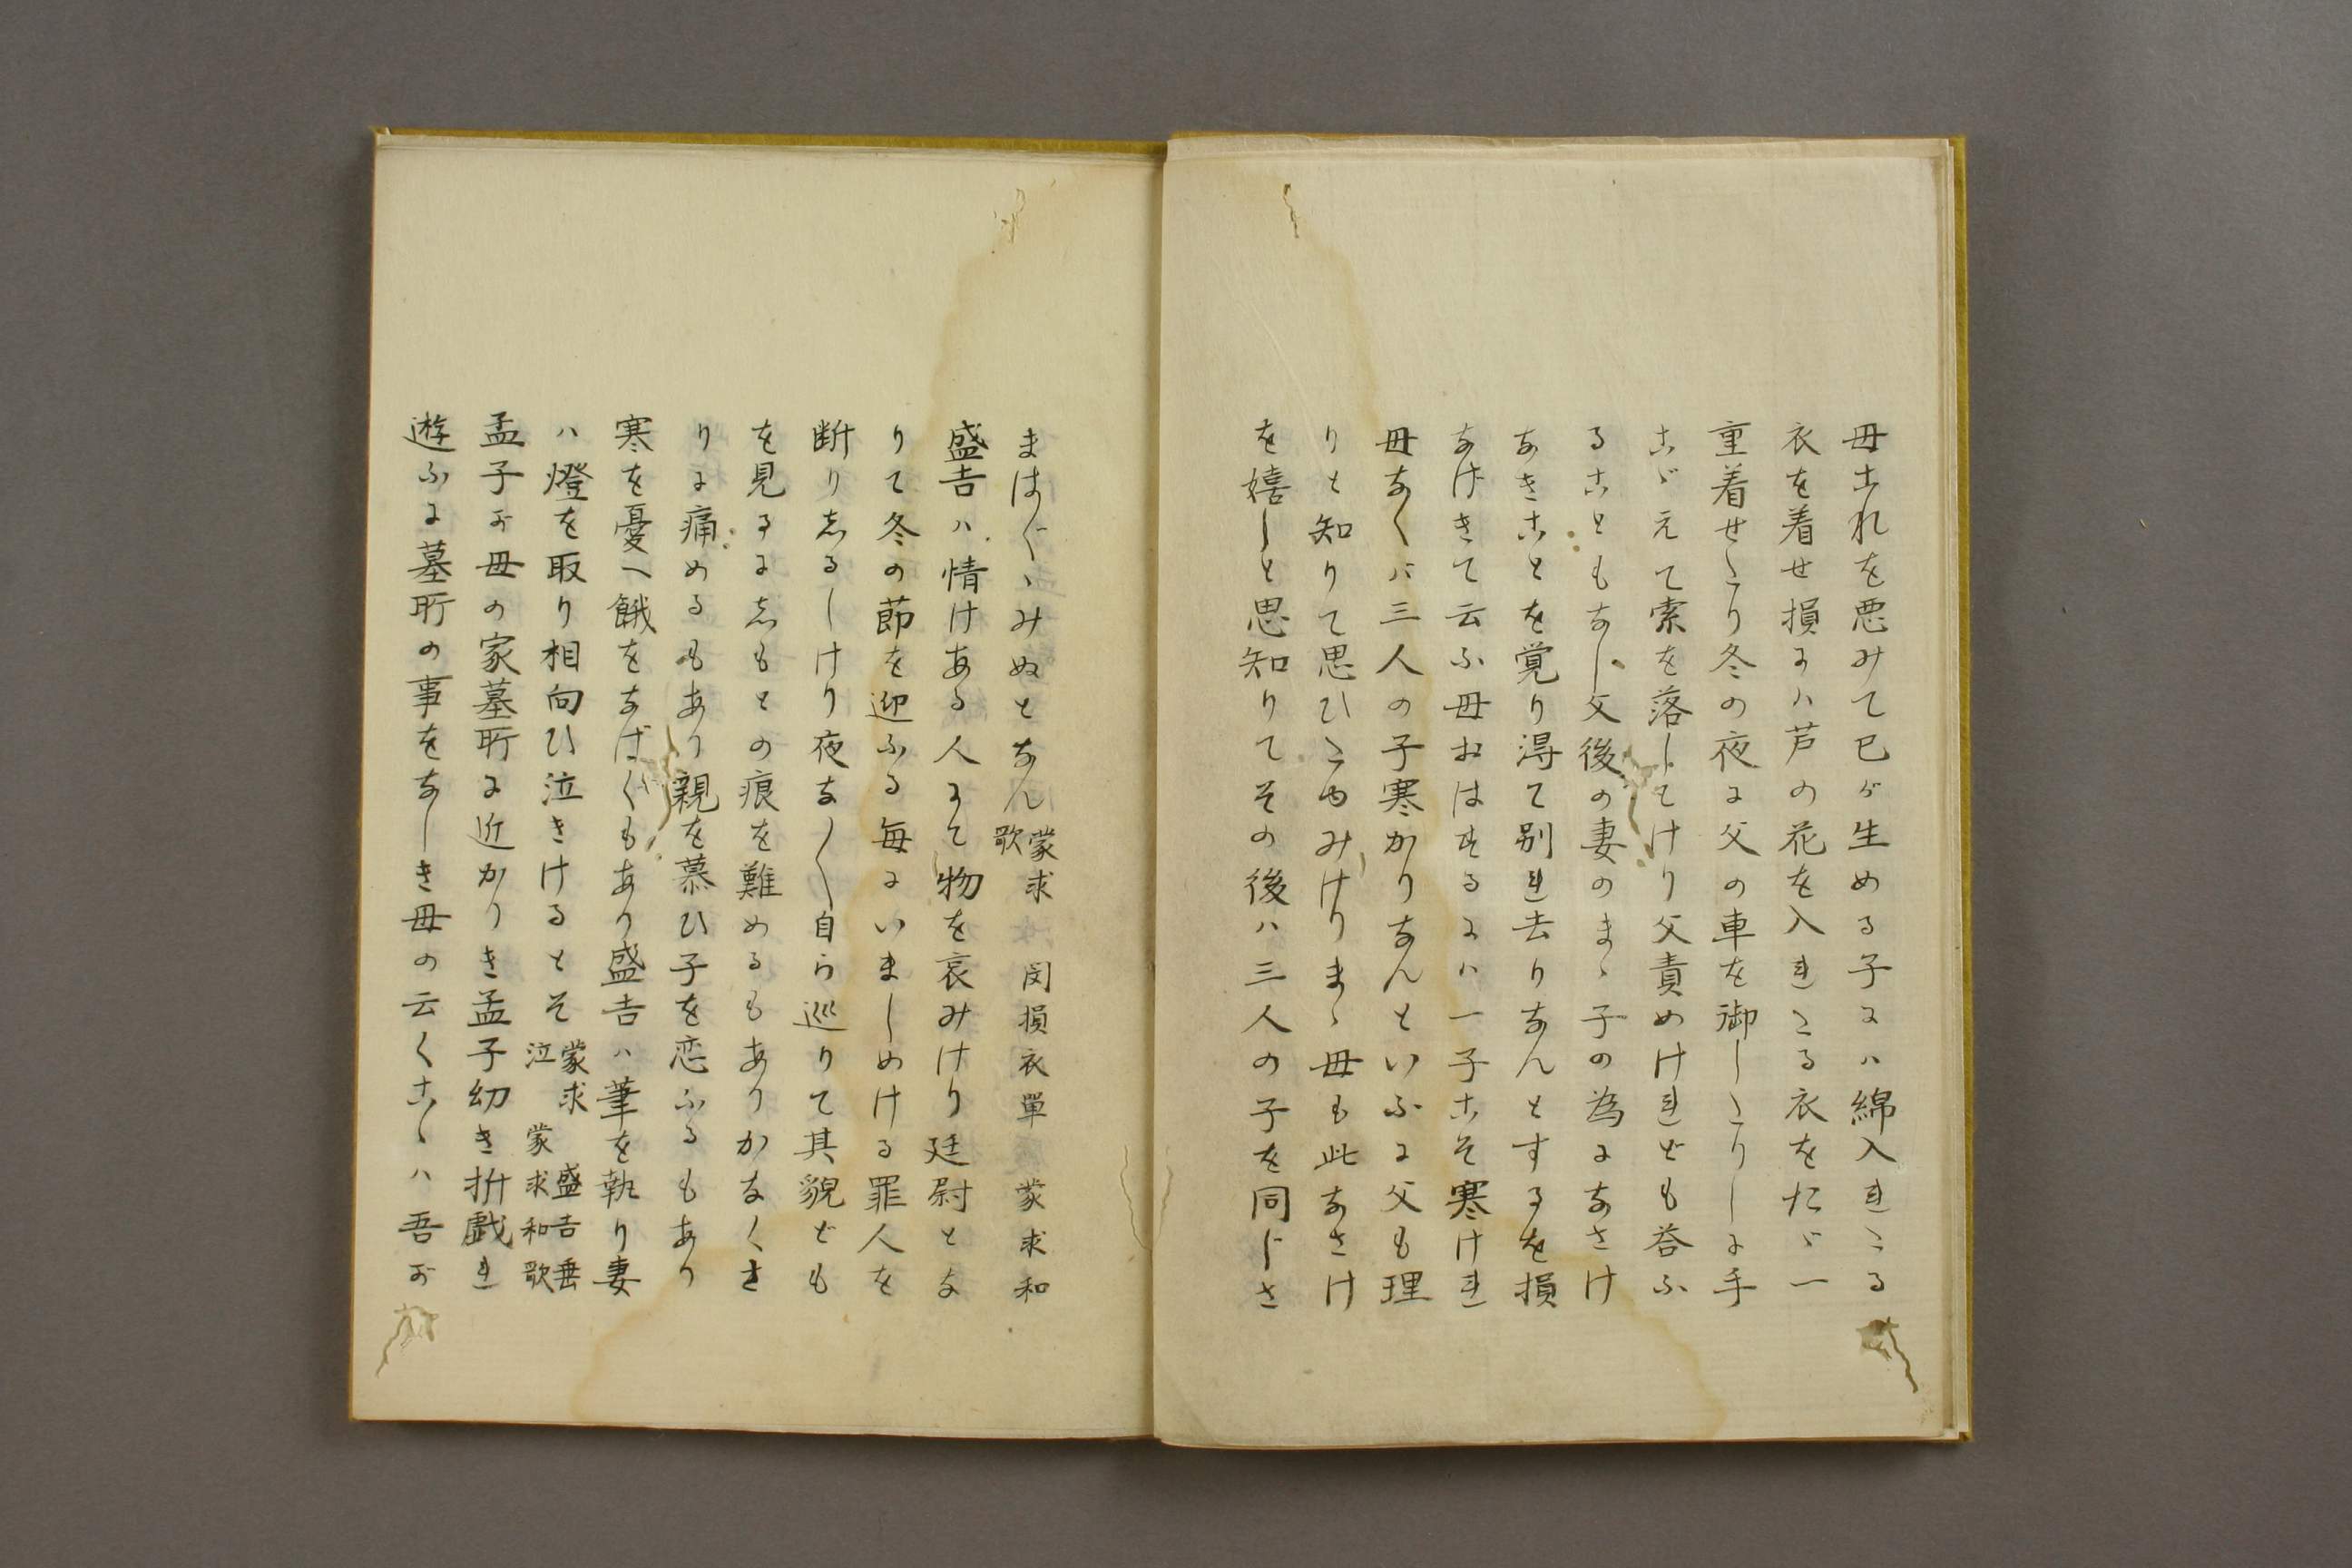 母これを悪みて已ガ生める子にハ綿入れたる
衣を着せ損にハ芦の花を入れたる衣をたゞ一
重着せたり冬の夜に父の車を御したりしに手
こゞえて索を落してけり父責めけれども答ふ
ることもなし父後の妻のまゝ子の為になさけ
なきことを覚り得て別れ去りなんとするを損
なげきて云ふ母おはするにハ一子こそ寒けれ
母なくバ三人の子寒かりなんといふに父も理
りと知りて思ひとゞみけりまゝ母も此なさけ
を嬉しと思知りてその後ハ三人の子を同じさ
まはぐゝみぬとなん 蒙求 閔損衣單 蒙求和
歌
盛吉ハ情けある人にて物を哀みけり廷尉とな
りて冬の節を迎ふる毎にいましめける罪人を
断りしるしけり夜な〱自ら巡りて其貌ども
を見るにしもとの痕を難めるもありかなくさ
りに痛めるもあり親を慕ひ子を恋ふるもあり
寒を憂へ餓をなげくもあり盛吉ハ筆を執り妻
ハ燈を取り相向ひ泣きけるとそ 蒙求 盛吉垂
泣 蒙求和歌
孟子が母の家墓所に近かりき孟子幼き折戯れ
遊ふに墓所の事をなしき母の云くこゝハ吾が